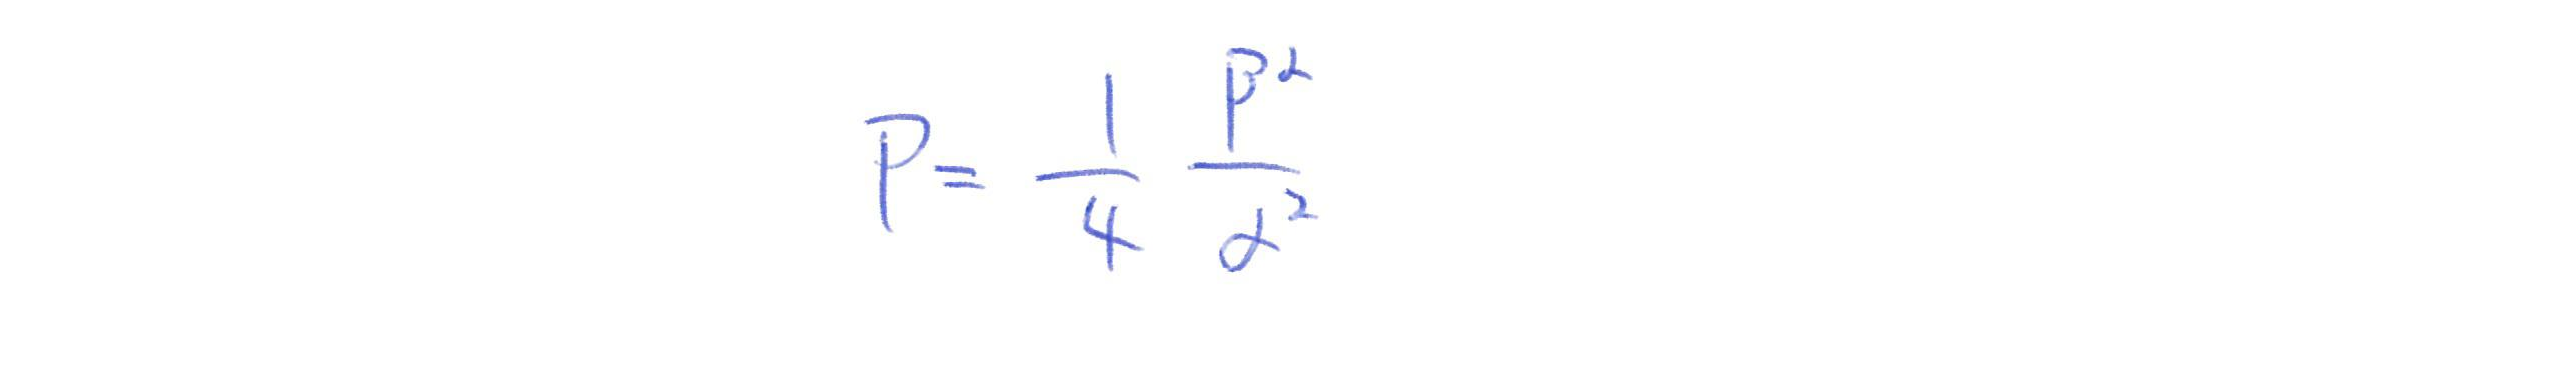 P = \frac{1}{4} \frac{P^2}{d^2}